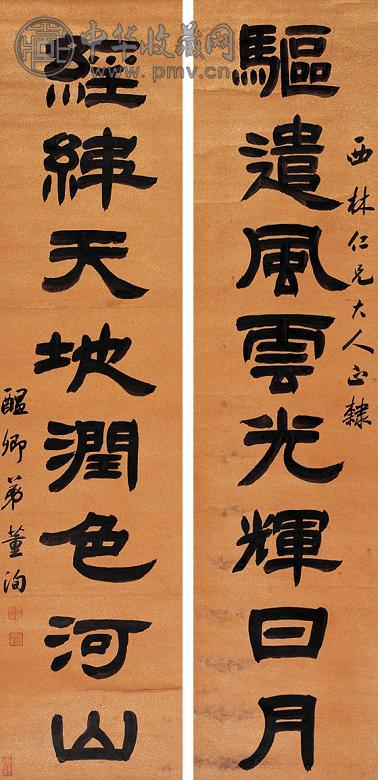 西林仁兄大人正隸
驅遣風雲光輝日月
經緯天地潤色河山
醖卿弟董洵
中华收藏网
www.pmv.cn